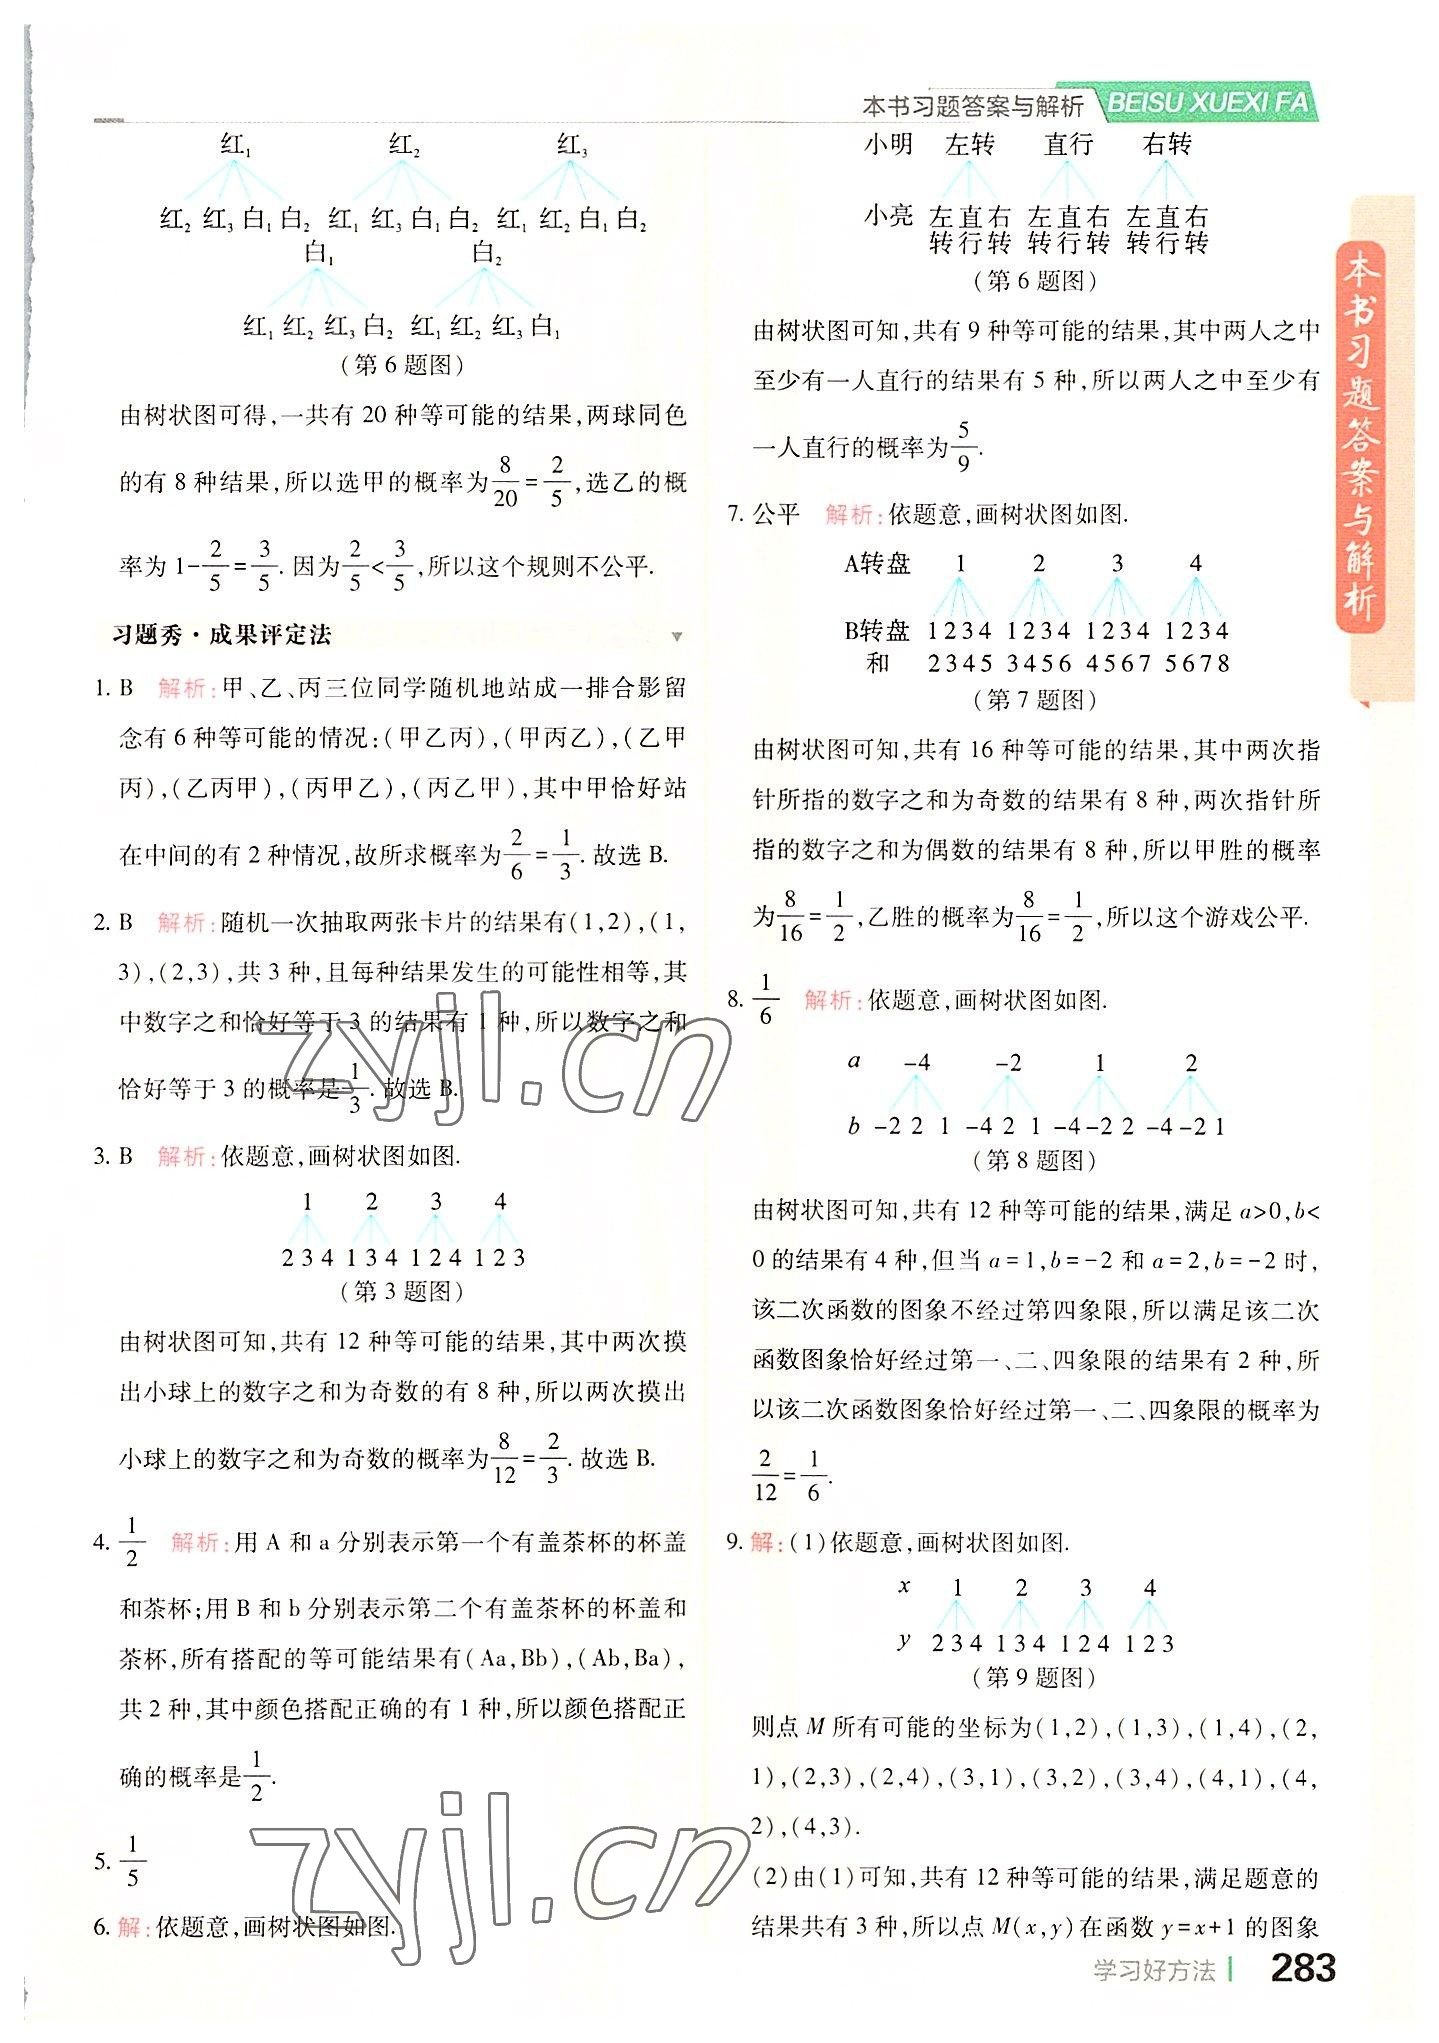 本书习题答案与解析 BEISU XUEXI FA
红1 红2 红3
红2 红3 白1 白2 红1 红3 白1 白2 红1 红2 白1 白2
白1 白2
红1 红2 红3 白2 红1 红2 红3 白1
(第6题图)
由树状图可得,一共有20种等可能的结果,两球同色
的有8种结果,所以选甲的概率为8/20=2/5,选乙的概
率为1-2/5=3/5.因为2/5<3/5,所以这个规则不公平.
习题秀·成果评定法
1. B 解析:甲、乙、丙三位同学随机地站成一排合影留
念有6种等可能的情况:(甲乙丙),(甲丙乙),(乙甲
丙),(乙丙甲),(丙甲乙),(丙乙甲),其中甲恰好站
在中间的有2种情况,故所求概率为2/6=1/3.故选B.
2. B 解析:随机一次抽取两张卡片的结果有(1,2),(1,
3),(2,3),共3种,且每种结果发生的可能性相等,其
中数字之和恰好等于3的结果有1种,所以数字之和
恰好等于3的概率是1/3.故选B.
3. B 解析:依题意,画树状图如图.
1 2 3 4
2 3 4 1 3 4 1 2 4 1 2 3
(第3题图)
由树状图可知,共有12种等可能的结果,其中两次摸
出小球上的数字之和为奇数的有8种,所以两次摸出
小球上的数字之和为奇数的概率为8/12=2/3.故选B.
4. 1/2 解析:用A和a分别表示第一个有盖茶杯的杯盖
和茶杯;用B和b分别表示第二个有盖茶杯的杯盖和
茶杯,所有搭配的等可能结果有(Aa,Bb),(Ab,Ba),
共2种,其中颜色搭配正确的有1种,所以颜色搭配正
确的概率是1/2.
5. 1/5
6. 解:依题意,画树状图如图.
小明 左转 直行 右转
小亮 左直右 左直右 左直右
转行转 转行转 转行转
(第6题图)
由树状图可知,共有9种等可能的结果,其中两人之中
至少有一人直行的结果有5种,所以两人之中至少有
一人直行的概率为5/9.
7. 公平 解析:依题意,画树状图如图.
A转盘 1 2 3 4
B转盘 1234 1234 1234 1234
和 2345 3456 4567 5678
(第7题图)
由树状图可知,共有16种等可能的结果,其中两次指
针所指的数字之和为奇数的结果有8种,两次指针所
指的数字之和为偶数的结果有8种,所以甲胜的概率
为8/16=1/2,乙胜的概率为8/16=1/2,所以这个游戏公平.
8. 1/6 解析:依题意,画树状图如图.
a -4 -2 1 2
b -2 2 1 -4 2 1 -4 -2 2 -4 -2 1
(第8题图)
由树状图可知,共有12种等可能的结果,满足a>0,b<
0的结果有4种,但当a=1,b=-2和a=2,b=-2时,
该二次函数的图象不经过第四象限,所以满足该二次
函数图象恰好经过第一、二、四象限的结果有2种,所
以该二次函数图象恰好经过第一、二、四象限的概率为
2/12=1/6.
9. 解:(1)依题意,画树状图如图.
x 1 2 3 4
y 2 3 4 1 3 4 1 2 4 1 2 3
(第9题图)
则点M所有可能的坐标为(1,2),(1,3),(1,4),(2,
1),(2,3),(2,4),(3,1),(3,2),(3,4),(4,1),(4,
2),(4,3).
(2)由(1)可知,共有12种等可能的结果,满足题意的
结果共有3种,所以点M(x,y)在函数y=x+1的图象
本书习题答案与解析
zyjl.cn
zyjl.cn
学习好方法 283